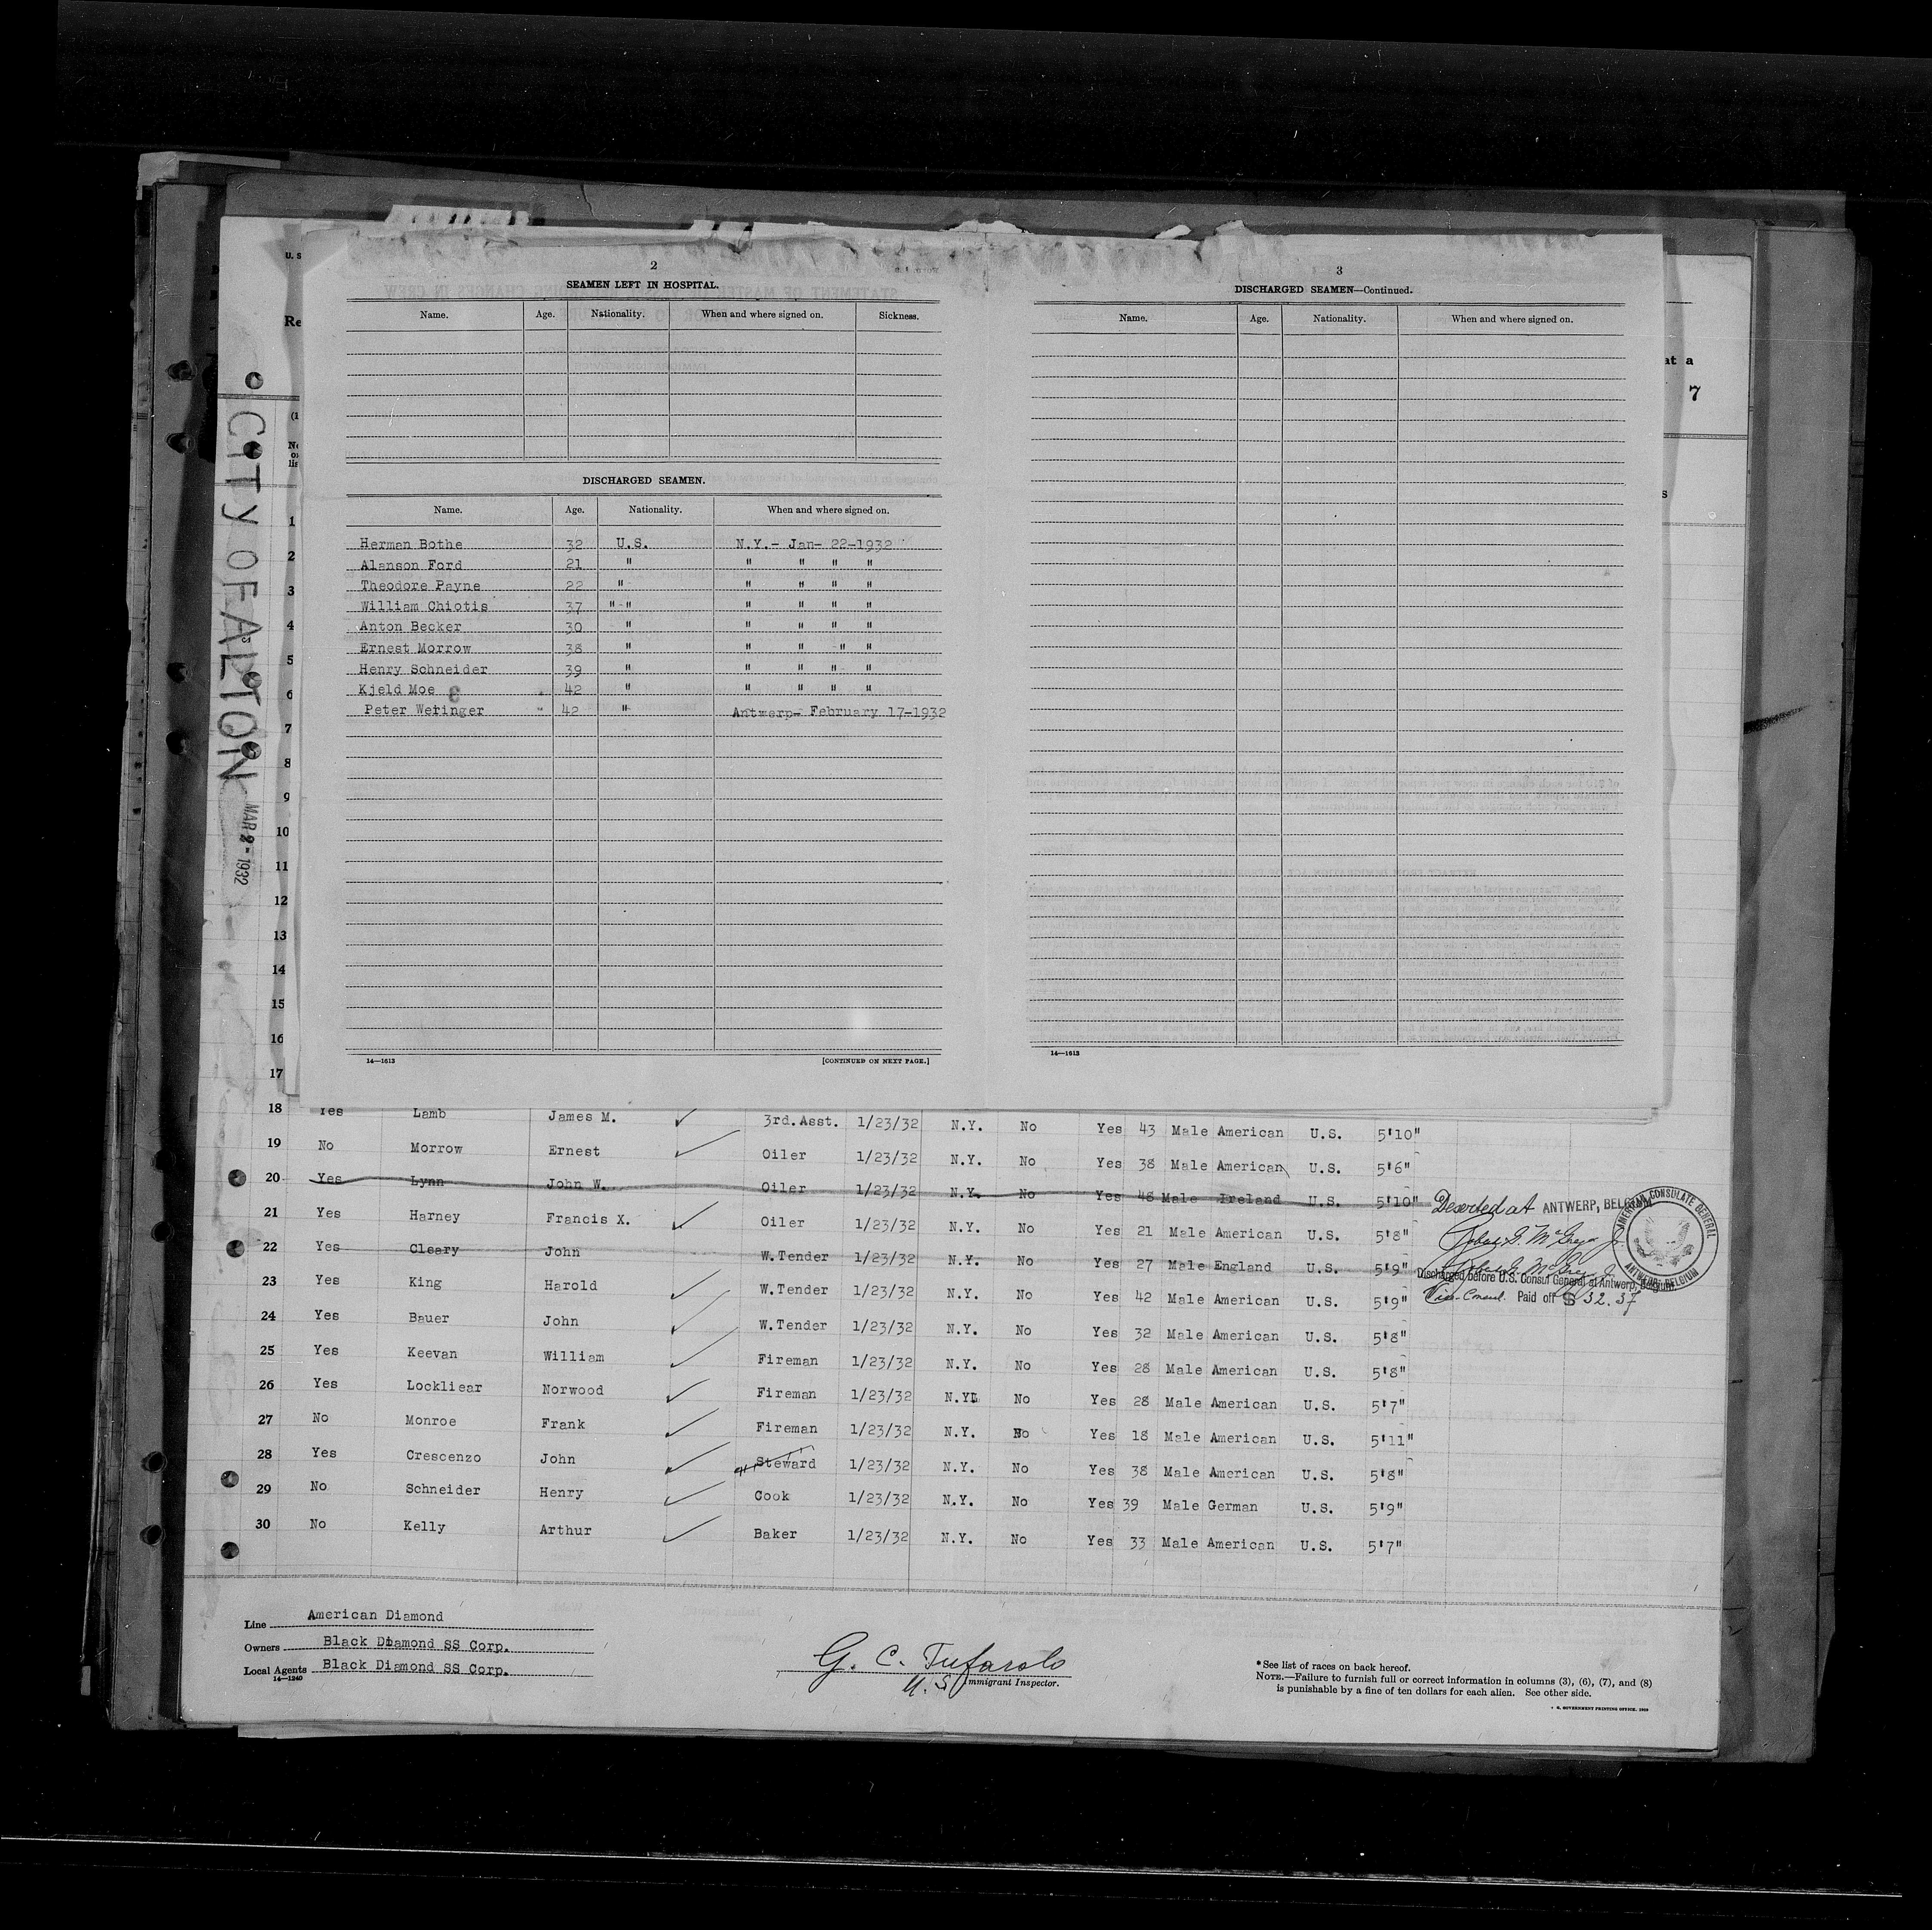 2
SEAMEN LEFT IN HOSPITAL.
Name. Age. Nationality. When and where signed on. Sickness.
DISCHARGED SEAMEN.
Name. Age. Nationality. When and where signed on.
Herman Bothe 32 U.S. N.Y.- Jan- 22-1932
Alanson Ford 21 " " " " "
Theodore Payne 22 " " " " "
William Chiotis 37 "-" " " " "
Anton Becker 30 " " " " "
Ernest Morrow 38 " " " -" "
Henry Schneider 39 " " " "- "
Kjeld Moe 42 " " " " "
Peter Weringer 42 " Antwerp- February 17-1932
14—1613 [CONTINUED ON NEXT PAGE.]
3
DISCHARGED SEAMEN—Continued.
Name. Age. Nationality. When and where signed on.
14—1613
U. S
Re
at a
7
(1
No
on
lis
s
CITY OF ALTON
MAR 2 - 1932
1
2
3
4
5
6
7
8
9
10
11
12
13
14
15
16
17
18 Yes Lamb James M. 3rd.Asst. 1/23/32 N.Y. No Yes 43 Male American U.S. 5'10"
19 No Morrow Ernest Oiler 1/23/32 N.Y. No Yes 38 Male American U.S. 5'6"
20 Yes Lynn John W. Oiler 1/23/32 N.Y. No Yes 48 Male Ireland U.S. 5'10" Deserted at ANTWERP, BELGIUM
21 Yes Harney Francis X. Oiler 1/23/32 N.Y. No Yes 21 Male American U.S. 5'8"
22 Yes Cleary John W.Tender 1/23/32 N.Y. No Yes 27 Male England U.S. 5'9" Discharged before U.S. Consul General at Antwerp, Belgium.
Vice Consul. Paid off $ 32.37
AMERICAN CONSULATE GENERAL
ANTWERP, BELGIUM
23 Yes King Harold W.Tender 1/23/32 N.Y. No Yes 42 Male American U.S. 5'9"
24 Yes Bauer John W.Tender 1/23/32 N.Y. No Yes 32 Male American U.S. 5'8"
25 Yes Keevan William Fireman 1/23/32 N.Y. No Yes 28 Male American U.S. 5'8"
26 Yes Lockliear Norwood Fireman 1/23/32 N.Y. No Yes 28 Male American U.S. 5'7"
27 No Monroe Frank Fireman 1/23/32 N.Y. No Yes 18 Male American U.S. 5'11"
28 Yes Crescenzo John Steward 1/23/32 N.Y. No Yes 38 Male American U.S. 5'8"
29 No Schneider Henry Cook 1/23/32 N.Y. No Yes 39 Male German U.S. 5'9"
30 No Kelly Arthur Baker 1/23/32 N.Y. No Yes 33 Male American U.S. 5'7"
Line American Diamond
Owners Black Diamond SS Corp.
Local Agents Black Diamond SS Corp.
14—1240
G. C. Tufarolo
U.S. Immigrant Inspector.
*See list of races on back hereof.
NOTE.—Failure to furnish full or correct information in columns (3), (6), (7), and (8)
is punishable by a fine of ten dollars for each alien. See other side.
GOVERNMENT PRINTING OFFICE.